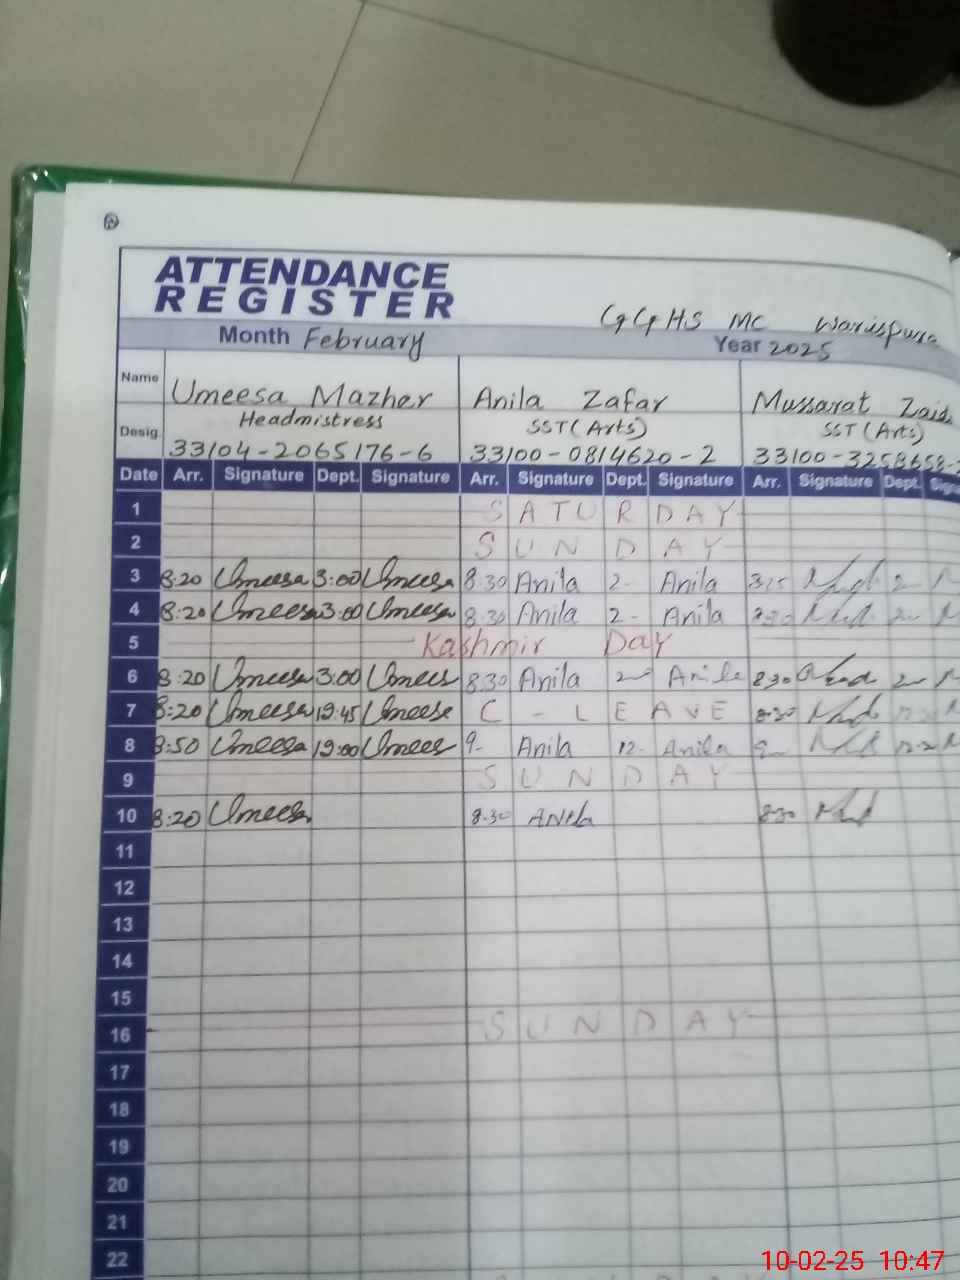 ATTENDANCE
REGISTER
GGHS MC Warispura
Month February Year 2025
Name Umeesa Mazher Anila Zafar Mussarat
Desig. Headmistress SST (Arts) SST (Arts)
33104-2065176-6 33100-0814620-2 33100-3258658-
Date Arr. Signature Dept. Signature Arr. Signature Dept. Signature Arr. Signature Dept.
1 SATURDAY
2 SUNDAY
3 8:20 Umeesa 3:00 Umeesa 8.30 Anila 2- Anila 2
4 8:20 Umeesa 3:00 Umeesa 8.30 Anila 2- Anila
5 Kashmir Day
6 8:20 Umeesa 3:00 Umees 8.30 Anila Anila 8.30
7 8:20 Umeesa 12:45 Umeese C-LEAVE 8.30
8 8:50 Umeesa 12:00 Umees 9- Anila 12- Anila 9
9 SUNDAY
10 8:20 Umeesa 8.30 Anila 8.30
11
12
13
14
15
16 SUNDAY
17
18
19
20
21
22
10-02-25 10:47